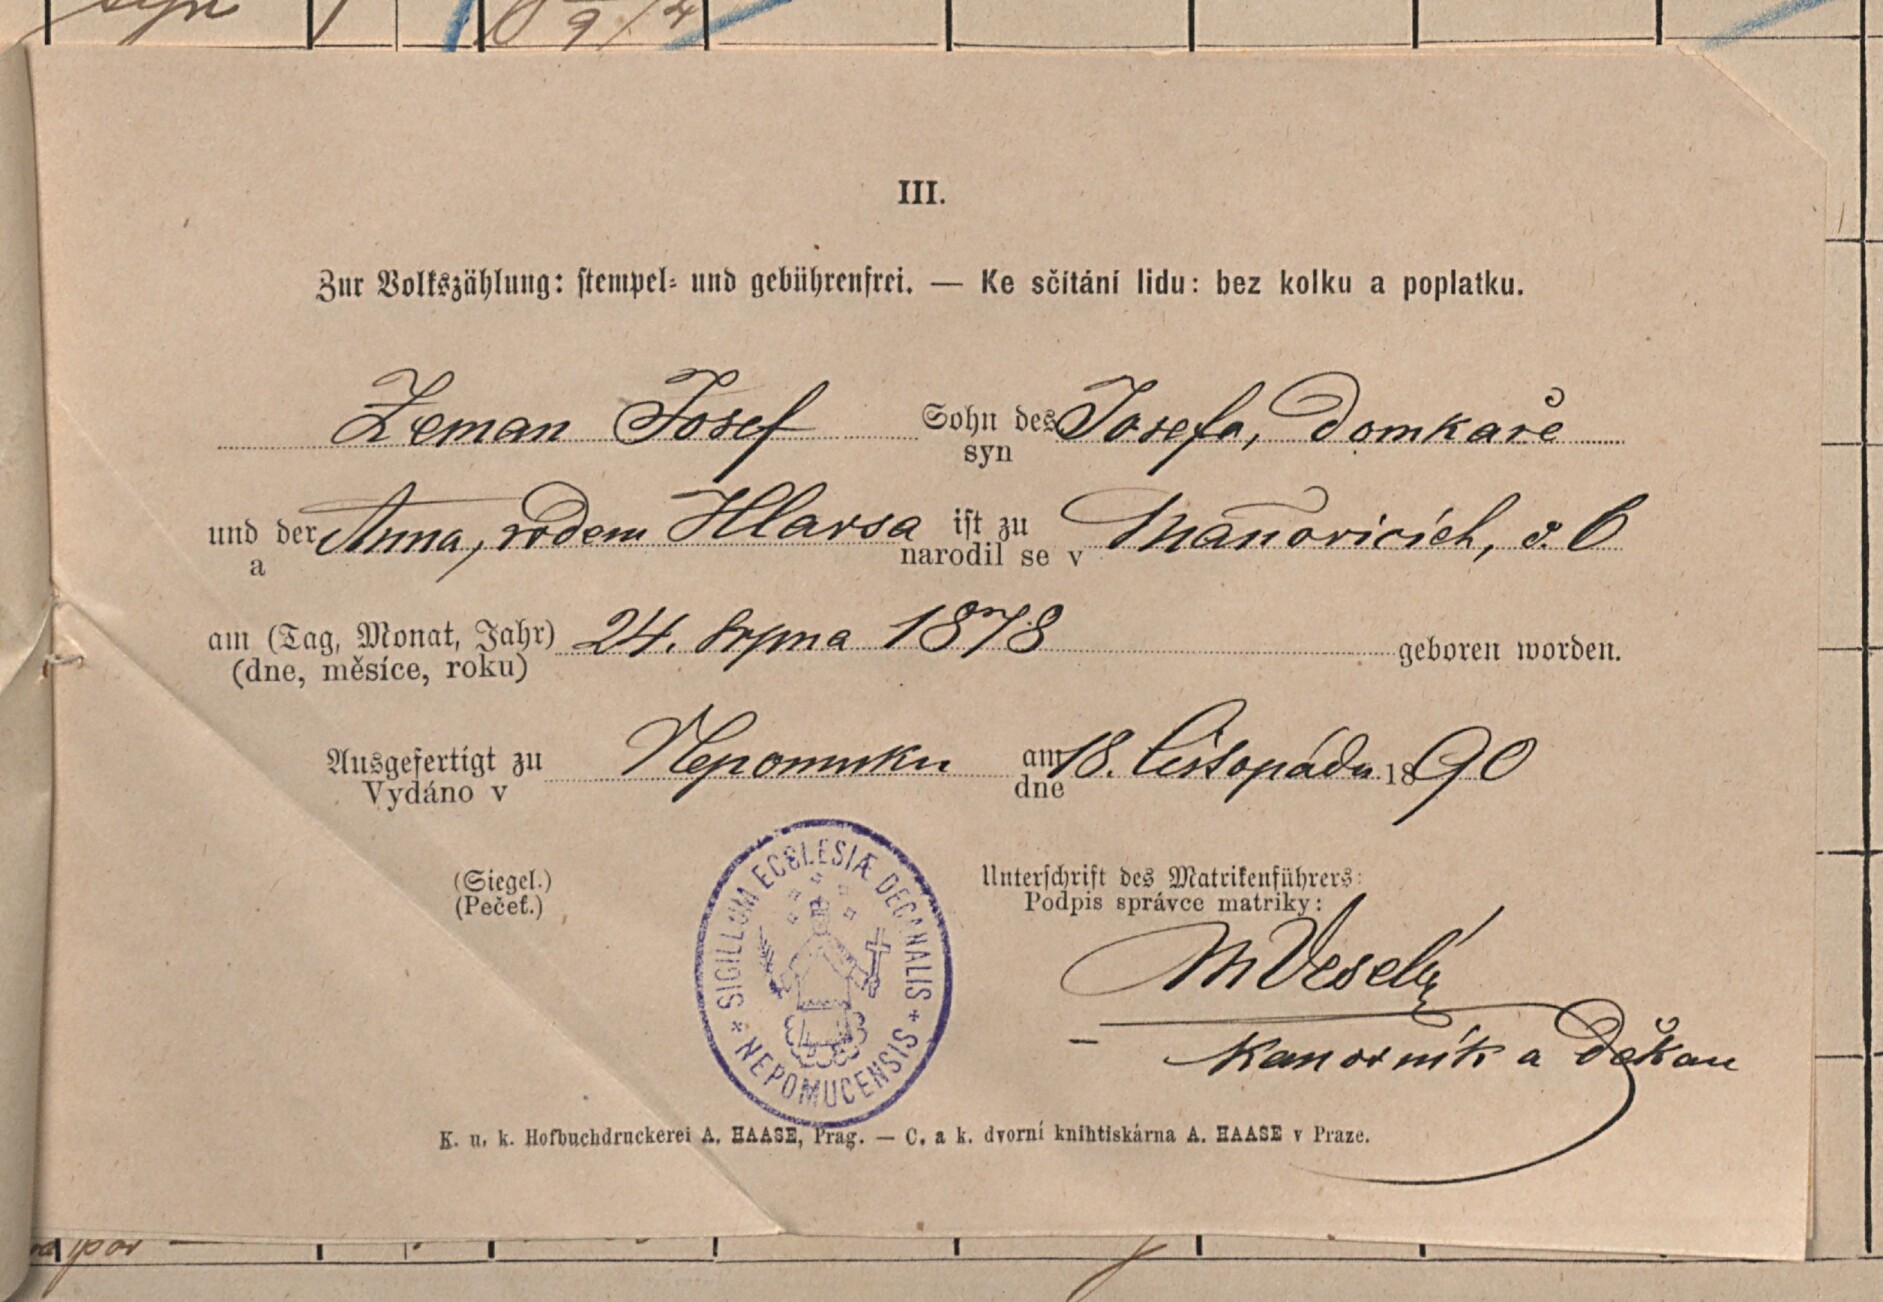 syn
III.
Zur Volkszählung: stempel- und gebührenfrei. — Ke sčítání lidu: bez kolku a poplatku.
Zeman Josef Sohn des Josefa, domkaře
syn
und der Anna, rodem Hlavsa ist zu Maňovicích, č. 6
a narodil se v
am (Tag, Monat, Jahr) 24. srpna 1878 geboren worden.
(dne, měsíce, roku)
Ausgefertigt zu Nepomuku am 18. listopádu 1890
Vydáno v dne
(Siegel.)
(Pečeť.)
SIGILLUM ECCLESIÆ DECANALIS
* NEPOMUCENSIS *
Unterschrift des Matrikenführers:
Podpis správce matriky:
M Veselý
kanovník a děkan
K. u. k. Hofbuchdruckerei A. HAASE, Prag. — C. a k. dvorní knihtiskárna A. HAASE v Praze.